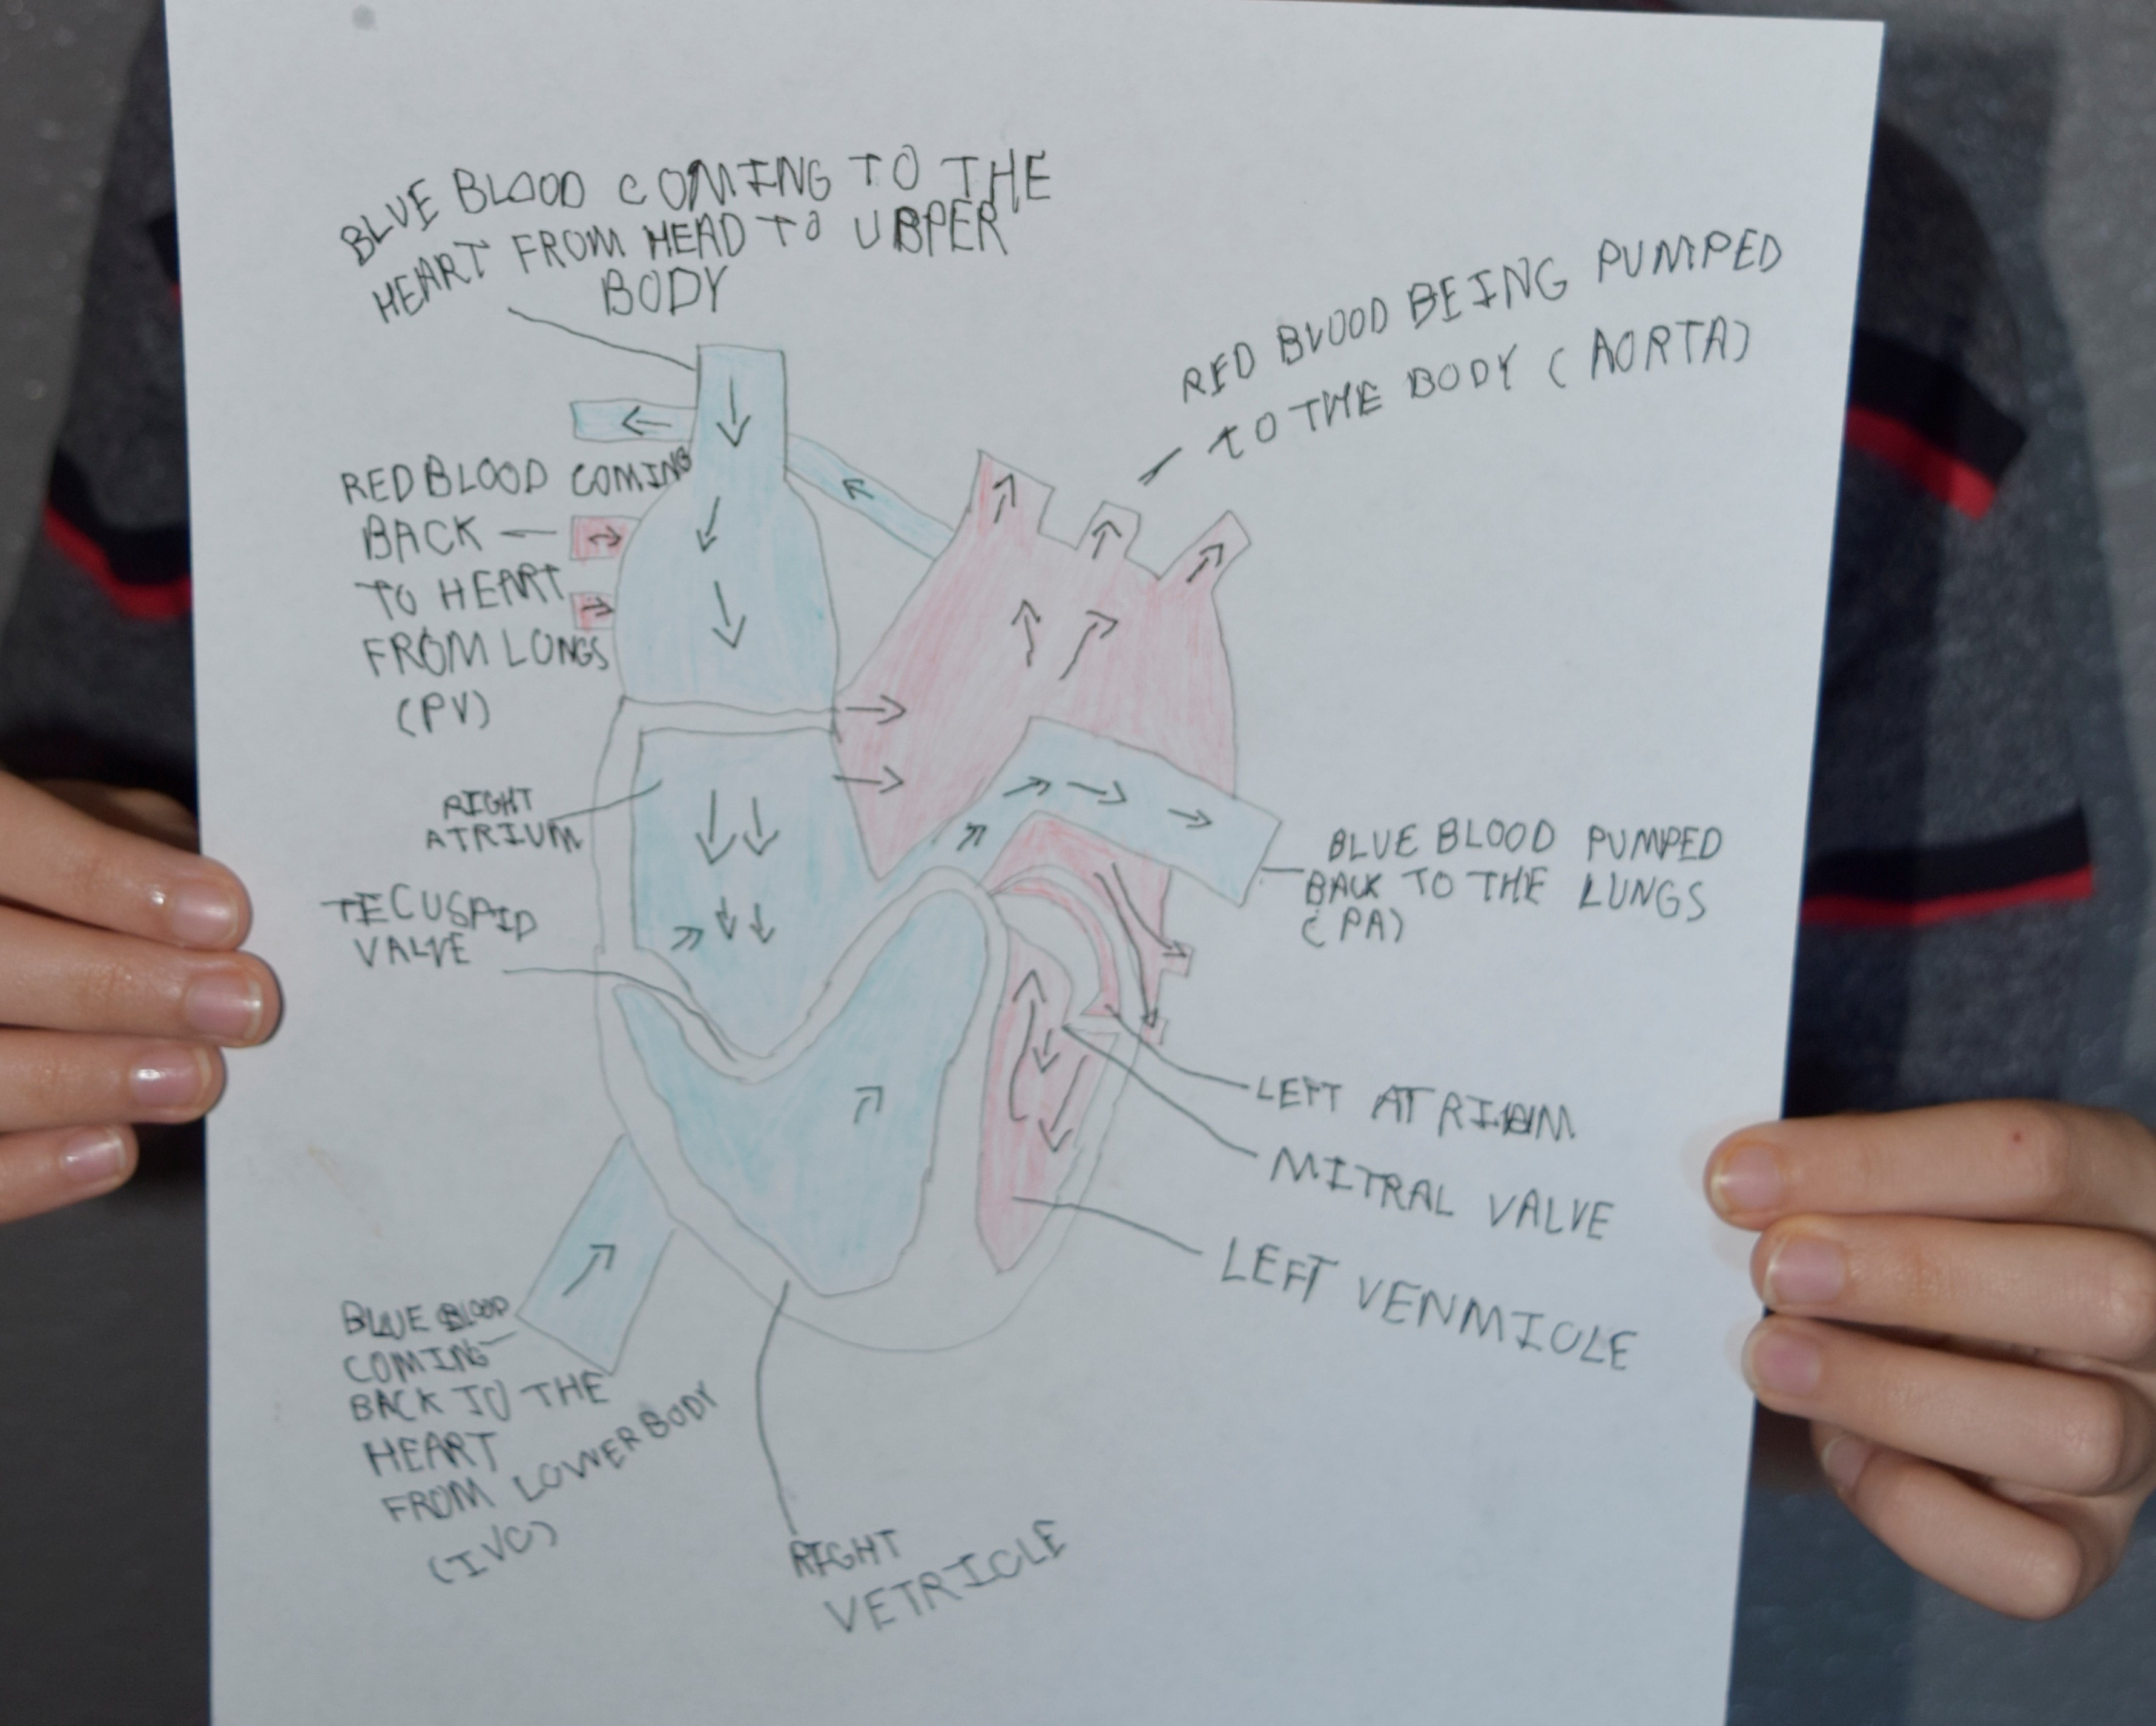 BLUE BLOOD COMING TO THE
HEART FROM HEAD TO UBPER
BODY
RED BLOOD BEING PUMPED
TO THE BODY (AORTA)
RED BLOOD COMING
BACK
TO HEART
FROM LONGS
(PV)
RIGHT
ATRIUM
TECUSPID
VALVE
BLUE BLOOD PUMPED
BACK TO THE LUNGS
(PA)
LEFT ATRIUM
MITRAL VALVE
LEFT VENMICLE
BLUE BLOOD
COMING
BACK TO THE
HEART
FROM LOWER BODY
(IVC)
RIGHT
VETRICLE